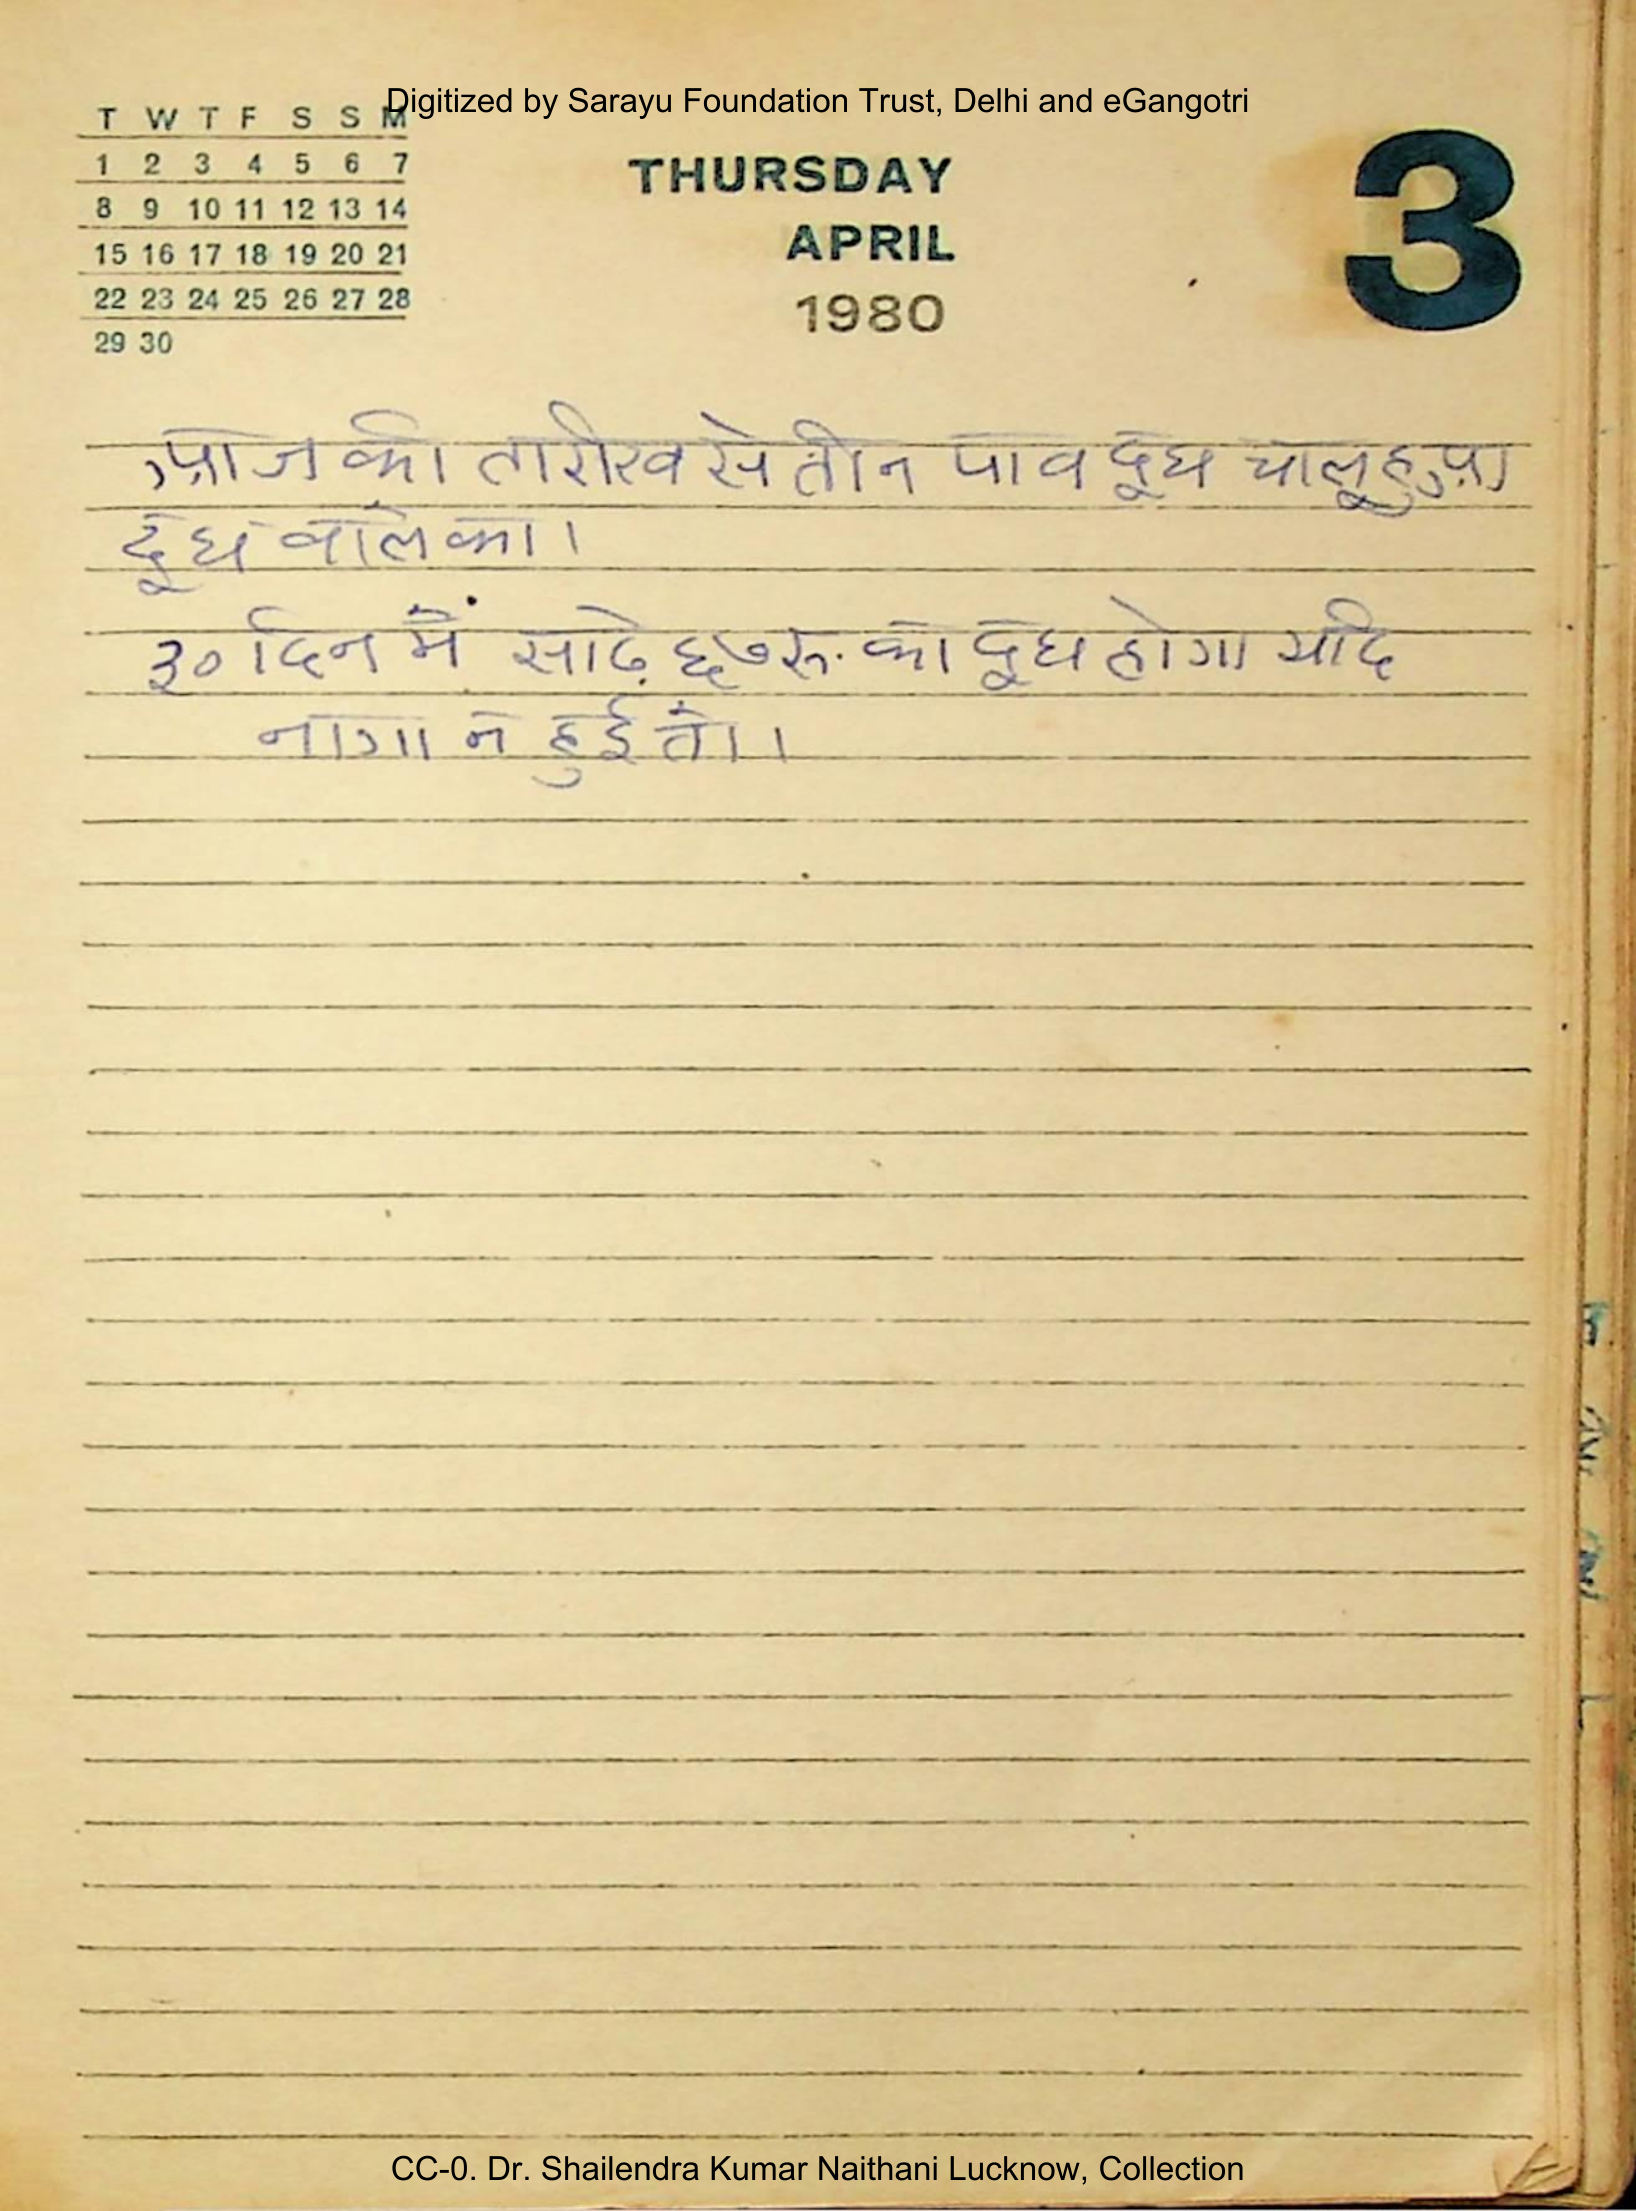 Digitized by Sarayu Foundation Trust, Delhi and eGangotri
T W T F S S M
1 2 3 4 5 6 7
8 9 10 11 12 13 14
15 16 17 18 19 20 21
22 23 24 25 26 27 28
29 30
THURSDAY
APRIL
1980
3
आज की तारीख से तीन पाव दूध चालू हुआ
दूध वाले का।
३० दिन में साढ़े ६७ रू. का दूध होगा यदि
नागा न हुई तो।
CC-0. Dr. Shailendra Kumar Naithani Lucknow, Collection